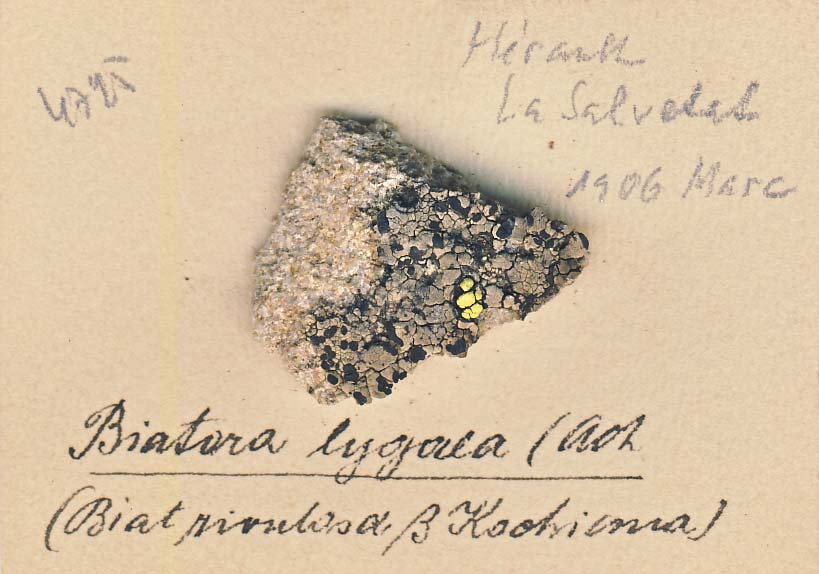 Hérault
La Salvetat
1906 Marc
Biatora lygaea (Ach
(Biat rivulosa β Kochiana)